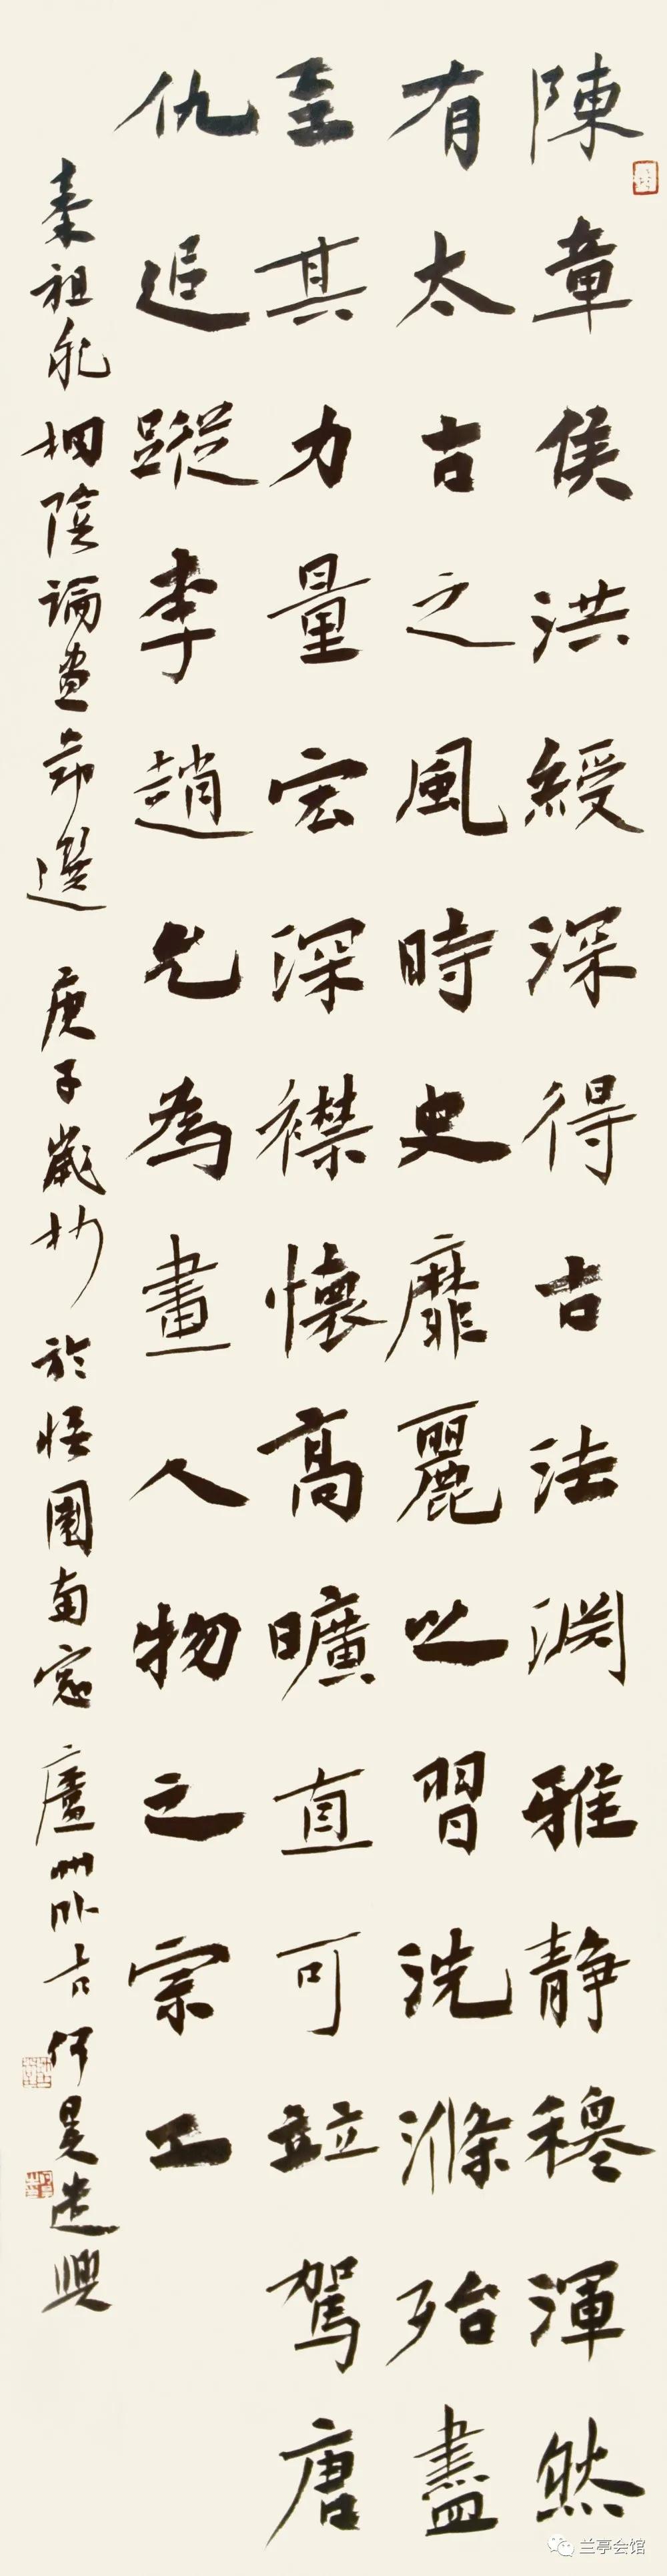 陳章侯洪綬深得古法渊雅静穆渾然
有太古之風時史靡麗之習洗滌殆盡
至其力量宏深襟懷高曠直可竝駕唐
仇追蹤李趙允為畫人物之宗工
秦祖永桐陰論畫節選 庚子歲杪於悟園南窗 廬州 何昊遣興
兰亭会馆